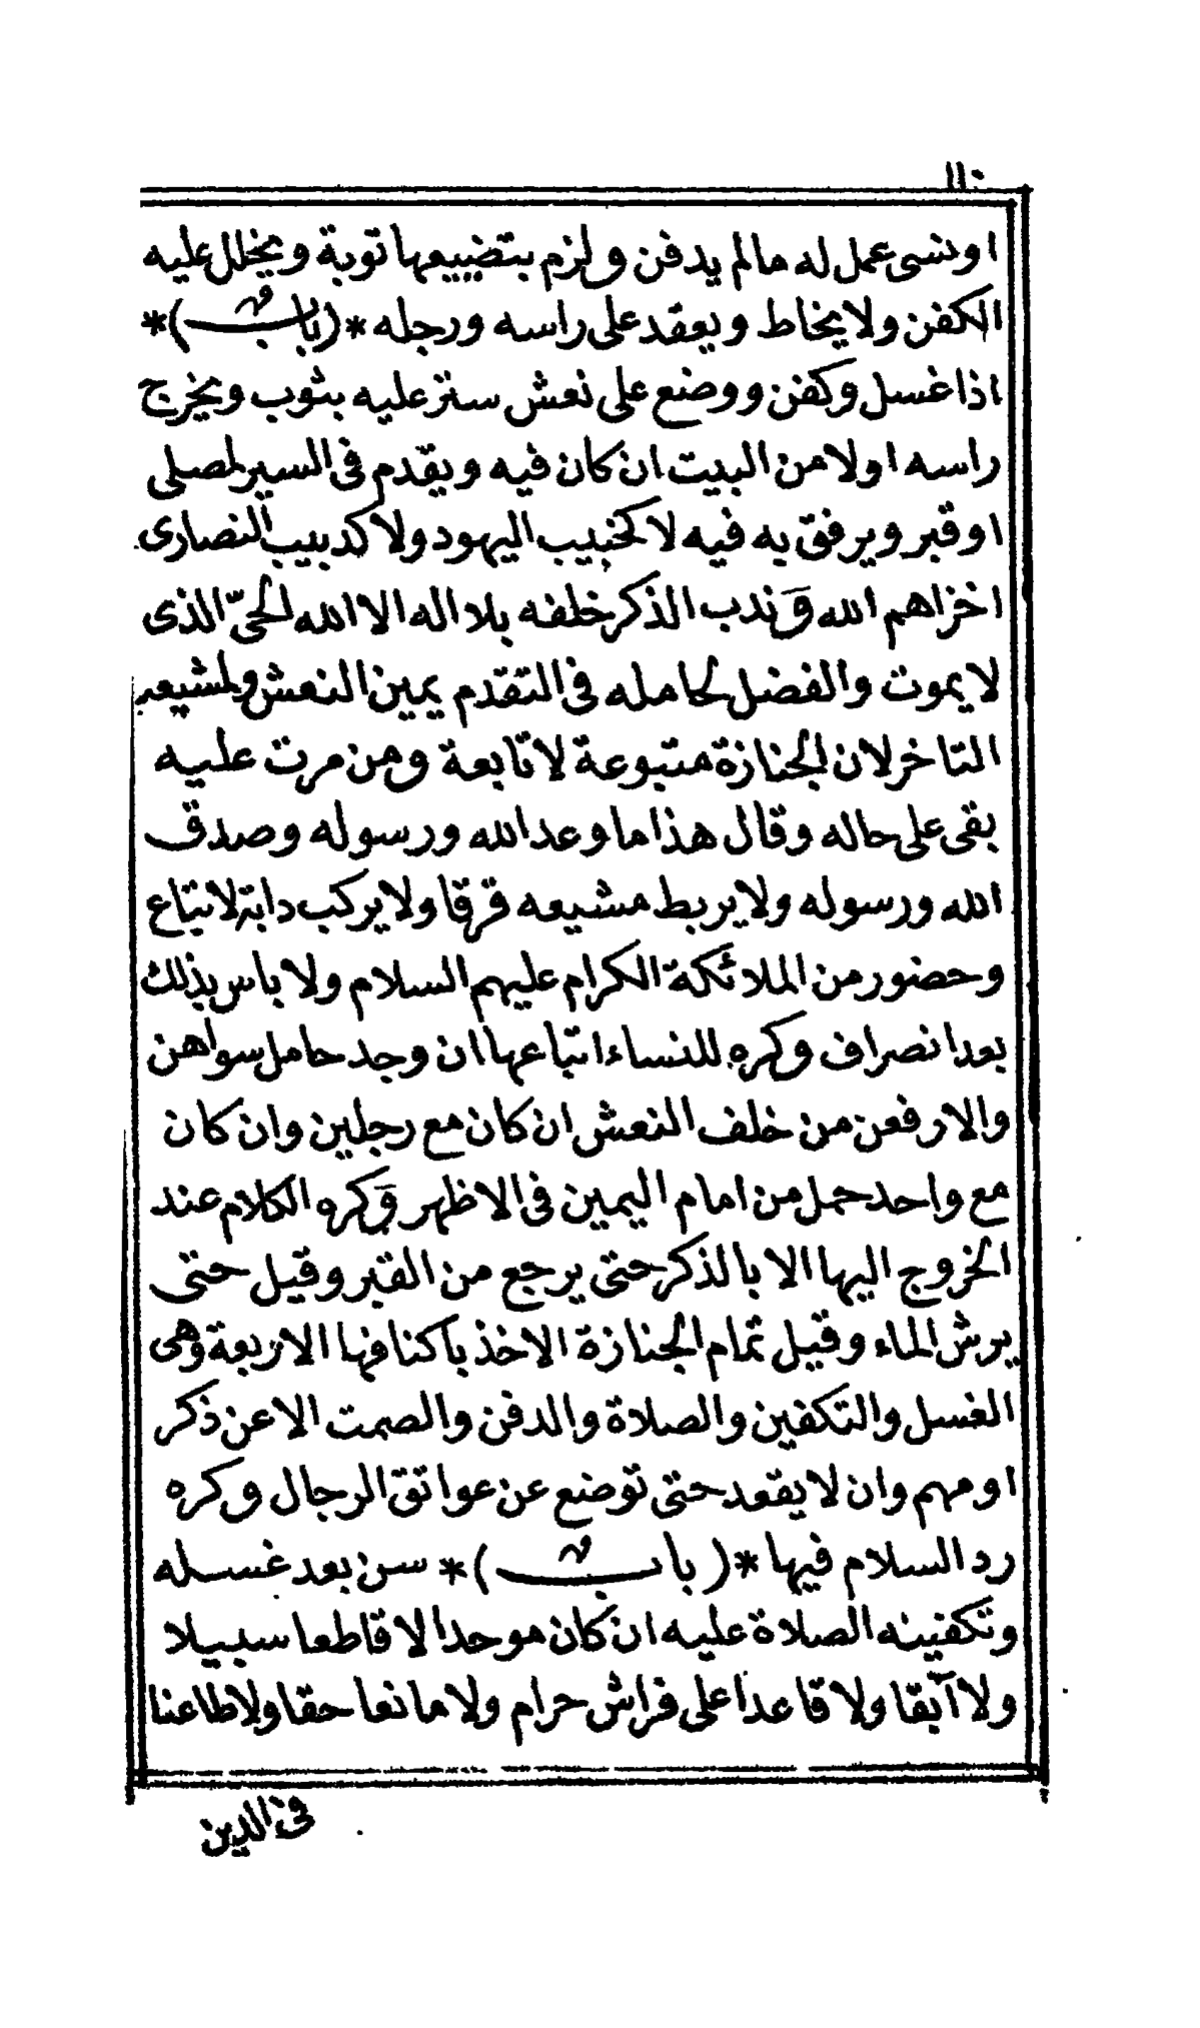 ١١٠
او نسى عمل له مالم يدفن ولزم بتضييعها توبة ويخلل عليه
الكفن ولا يخاط ويعقد على راسه ورجله *(باب)*
اذا غسل وكفن ووضع على نعش ستر عليه بثوب ويخرج
راسه اولا من البيت ان كان فيه ويقدم فى السير لمصلى
او قبر ويرفق به فيه لا كخبيب اليهود ولا كدبيب النصارى
اخزاهم الله وندب الذكر خلفه بلا اله الا الله الحىّ الذى
لا يموت والفضل لحامله فى التقدم يمين النعش ولمشيعه
التاخر لان الجنازة متبوعة لا تابعة ومن مرت عليه
بقى على حاله وقال هذا ما وعد الله ورسوله وصدق
الله ورسوله ولا يربط مشيعه قرقا ولا يركب دابة لاتباع
وحضور من الملائكة الكرام عليهم السلام ولا باس بذلك
بعد انصراف وكره للنساء اتباعها ان وجد حامل سواهن
والا رفعن من خلف النعش ان كان مع رجلين وان كان
مع واحد حمل من امام اليمين فى الاظهر وكره الكلام عند
الخروج اليها الا بالذكر حتى يرجع من القبر وقيل حتى
يرش الماء وقيل تمام الجنازة الاخذ باكنافها الاربعة وهى
الغسل والتكفين والصلاة والدفن والصمت الا عن ذكر
او مهم وان لا يقعد حتى توضع عن عواتق الرجال وكره
رد السلام فيها *(باب)* سن بعد غسله
وتكفينه الصلاة عليه ان كان موحدا الا قاطعا سبيلا
ولا آبقا ولا قاعدا على فراش حرام ولا مانعا حقا ولا طاعنا
فى الدين